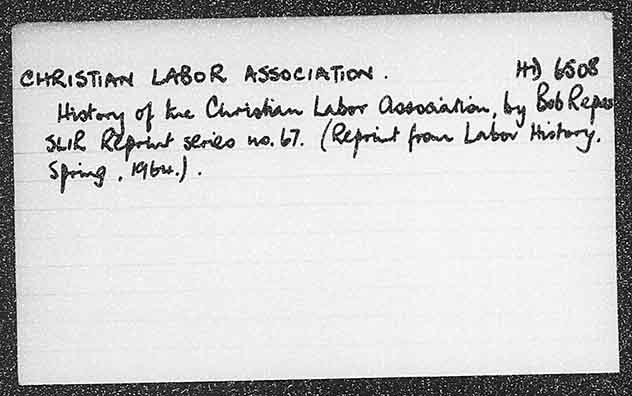 CHRISTIAN LABOR ASSOCIATION. HD 6508
History of the Christian Labor Association, by Bob Repas
SLIR Reprint series no. 67. (Reprint from Labor History,
Spring, 1964.).